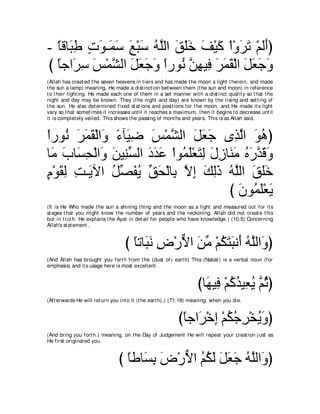 - أَلَمْ تَرَوْاْ كَيْفَ خَلَقَ اللَّهُ سَبْعَ سَمَـوَتٍ طِبَاقاً
- وَجَعَلَ الْقَمَرَ فِيهِنَّ نُوراً وَجَعَلَ الشَّمْسَ سِرَاجاً )
(Allah has created the seven heavens in tiers and has made the moon a light therein, and made
the sun a lamp) meaning, He made a distinction between them (the sun and moon) in reference
to their lighting. He made each one of them in a set manner with a distinct quality so that the
night and day may be known. They (the night and day) are known by the rising and setting of
the sun. He also determined fixed stations and positions for the moon, and He made its light
vary so that sometimes it increases until it reaches a maximum, then it begins to decrease until
it is completely veiled. This shows the passing of months and years. This is as Allah said,
(هُوَ الَّذِى جَعَلَ الشَّمْسَ ضِيَآءً وَالْقَمَرَ نُوراً
وَقَدَّرَهُ مَنَازِلَ لِتَعْلَمُواْ عَدَدَ السِّنِينَ وَالْحِسَابَ مَا
خَلَقَ اللَّهُ ذَلِكَ إِلاَّ بِالْحَقِّ يُفَصِّلُ الآيَـتِ لِقَوْمٍ
يَعْلَمُونَ )
(It is He Who made the sun a shining thing and the moon as a light and measured out for its
stages that you might know the number of years and the reckoning. Allah did not create this
but in truth. He explains the Ayat in detail for people who have knowledge.) (10:5) Concerning
Allah's statement,
(وَاللَّهُ أَنبَتَكُمْ مِّنَ الاٌّرْضِ نَبَاتاً )
(And Allah has brought you forth from the (dust of) earth) This (Nabat) is a verbal noun (for
emphasis) and its usage here is most excellent.
(ثُمَّ يُعِيدُكُمْ فِيهَا)
(Afterwards He will return you into it (the earth),) (71:18) meaning, when you die.
(وَيُخْرِجُكُمْ إِخْرَاجاً)
(And bring you forth.) meaning, on the Day of Judgement He will repeat your creation just as
He first originated you.
(وَاللَّهُ جَعَلَ لَكُمُ الاٌّرْضَ بِسَاطاً )